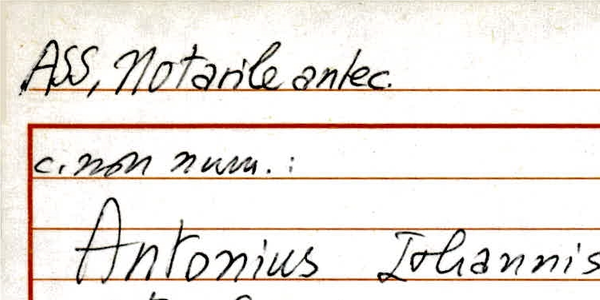 ASS, Notarile antec.
c. non num. :
Antonius Iohannis